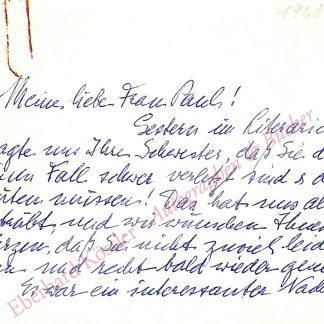 1968
Meine liebe Frau Paul!
Gestern im Literari
agte uns Ihre Schwester, daß Sie d
Fall schwer verletzt sind & d
üten müssen! Das hat uns al
trübt, und wir wünschen Ihne
rzen, daß Sie nicht zuviel lei
en und recht bald wieder gene
Es war ein interessanter Nach
Eberhard Köstler Autographen & Bücher